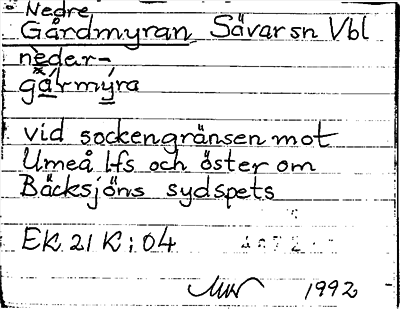 Nedre
Gårdmyran Sävar sn Vbl
nèdar-
gá̊rmýra
vid sockengränsen mot
Umeå lfs och öster om
Bäcksjöns sydspets
EK 21 K: 04
1992